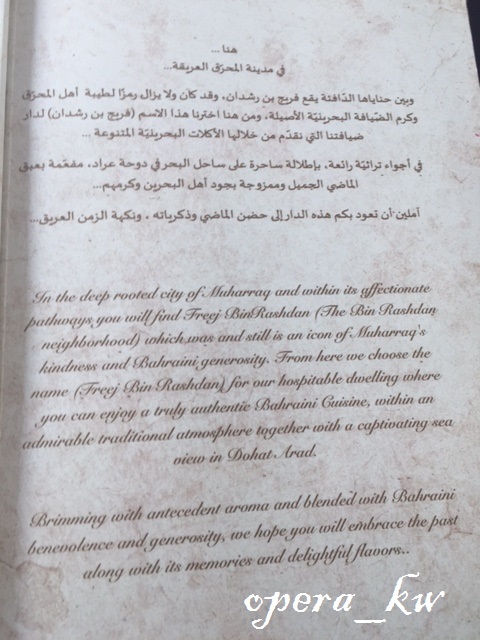 هنا ...
في مدينة المحرّق العريقة...
وبين حناياها الدّافئة يقع فريج بن رشدان، وقد كان ولا يزال رمزًا لطيبة أهل المحرّق
وكرم الضّيافة البحرينيّة الأصيلة، ومن هنا اخترنا هذا الاسم (فريج بن رشدان) لدار
ضيافتنا التي نقدّم من خلالها الأكلات البحرينيّة المتنوعة ...
في أجواء تراثيّة رائعة، بإطلالة ساحرة على ساحل البحر في دوحة عراد، مفعّمة بعبق
الماضي الجميل وممزوجة بجود أهل البحرين وكرمهم...
آملين أن تعود بكم هذه الدار إلى حضن الماضي وذكرياته ، ونكهة الزمن العريق...
In the deep rooted city of Muharraq and within its affectionate
pathways you will find Freej BinRashdan (The Bin Rashdan
neighborhood) which was and still is an icon of Muharraq's
kindness and Bahraini generosity. From here we choose the
name (Freej Bin Rashdan) for our hospitable dwelling where
you can enjoy a truly authentic Bahraini Cuisine, within an
admirable traditional atmosphere together with a captivating sea
view in Dohat Arad.
Brimming with antecedent aroma and blended with Bahraini
benevolence and generosity, we hope you will embrace the past
along with its memories and delightful flavors..
opera_kw